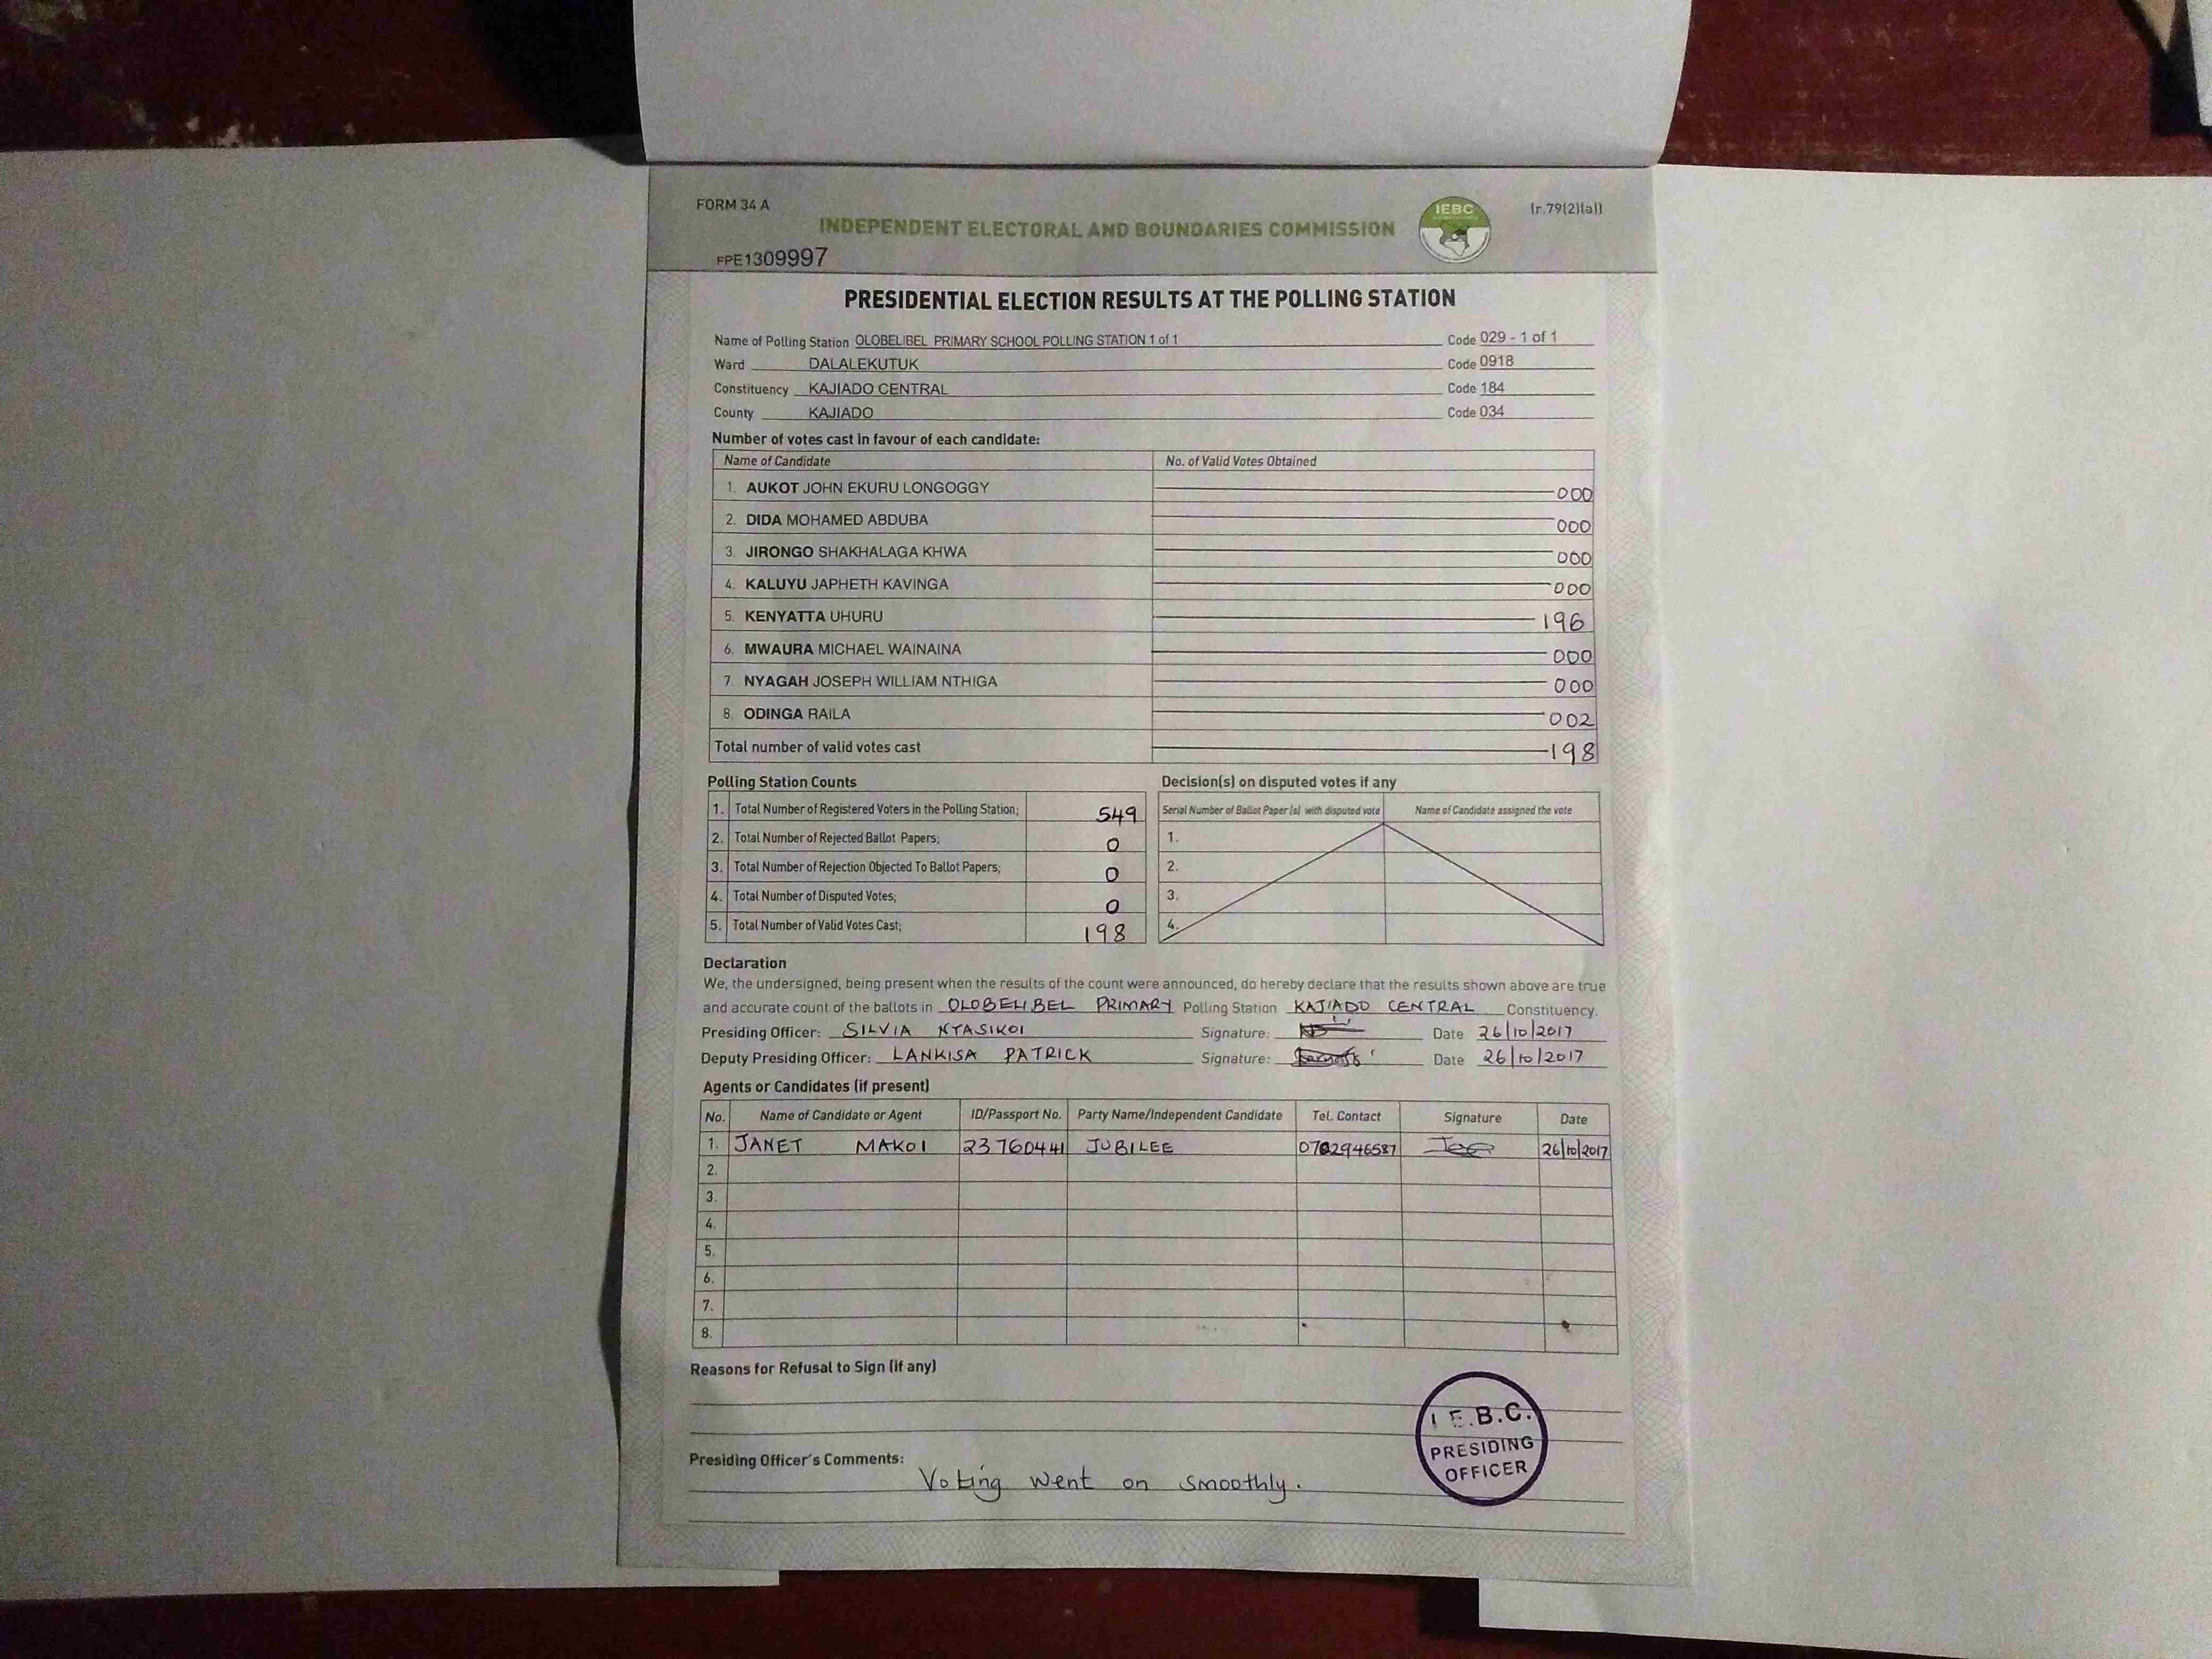 FORM 34 A
INDEPENDENT ELECTORAL AND BOUNDARIES COMMISSION
IEBC
(r.79(2)(a))
FPE1309997
PRESIDENTIAL ELECTION RESULTS AT THE POLLING STATION
Name of Polling Station OLOBELIBEL PRIMARY SCHOOL POLLING STATION 1 of 1 Code 029 - 1 of 1
Ward DALALEKUTUK Code 0918
Constituency KAJIADO CENTRAL Code 184
County KAJIADO Code 034
Number of votes cast in favour of each candidate:
Name of Candidate No. of Valid Votes Obtained
1. AUKOT JOHN EKURU LONGOGGY 000
2. DIDA MOHAMED ABDUBA 000
3. JIRONGO SHAKHALAGA KHWA 000
4. KALUYU JAPHETH KAVINGA 000
5. KENYATTA UHURU 196
6. MWAURA MICHAEL WAINAINA 000
7. NYAGAH JOSEPH WILLIAM NTHIGA 000
8. ODINGA RAILA 002
Total number of valid votes cast 198
Polling Station Counts
1. Total Number of Registered Voters in the Polling Station; 549
2. Total Number of Rejected Ballot Papers; 0
3. Total Number of Rejection Objected To Ballot Papers; 0
4. Total Number of Disputed Votes; 0
5. Total Number of Valid Votes Cast; 198
Decision(s) on disputed votes if any
Serial Number of Ballot Paper (s) with disputed vote Name of Candidate assigned the vote
1.
2.
3.
4.
Declaration
We, the undersigned, being present when the results of the count were announced, do hereby declare that the results shown above are true
and accurate count of the ballots in OLOBELIBEL PRIMARY Polling Station KAJIADO CENTRAL Constituency.
Presiding Officer: SILVIA NTASIKOI Signature: Date 26/10/2017
Deputy Presiding Officer: LANKISA PATRICK Signature: Date 26/10/2017
Agents or Candidates (if present)
No. Name of Candidate or Agent ID/Passport No. Party Name/Independent Candidate Tel. Contact Signature Date
1. JANET MAKOI 23760441 JUBILEE 0702946587 26/10/2017
2.
3.
4.
5.
6.
7.
8.
Reasons for Refusal to Sign (if any)
I.E.B.C.
PRESIDING
OFFICER
Presiding Officer's Comments:
Voting went on smoothly.